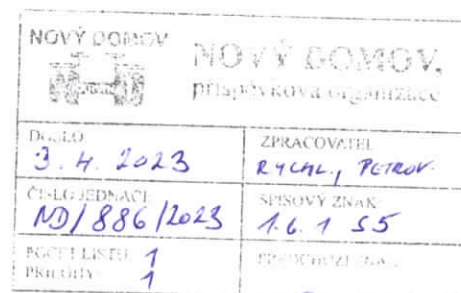 NOVÝ DOMOV
NOVÝ DOMOV,
příspěvková organizace
DOŠLO
3. 4. 2023
ZPRACOVATEL
RYCHL., PETROV.
ČÍSLO JEDNACÍ
ND/886/2023
SPISOVÝ ZNAK
1.6.1 S5
POČET LISTŮ 1
PŘÍLOHY 1